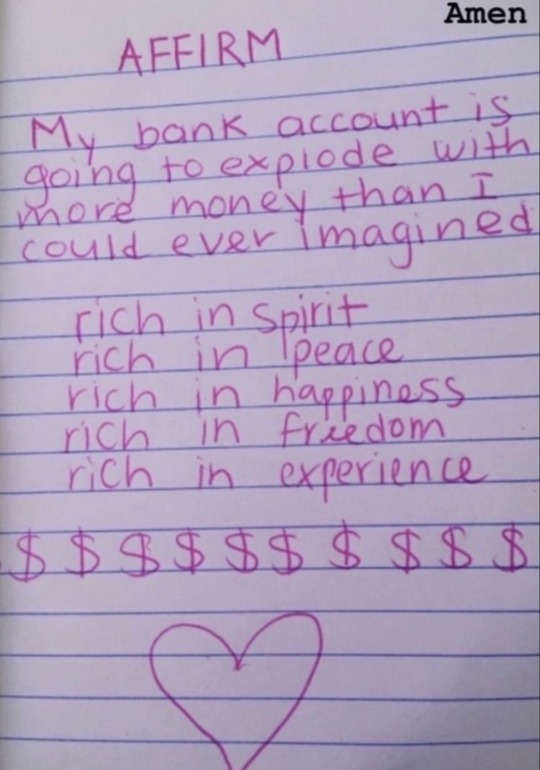 Amen
AFFIRM
My bank account is
going to explode with
more money than I
could ever imagined
rich in spirit
rich in peace
rich in happiness
rich in freedom
rich in experience
$ $ $ $ $ $ $ $ $ $